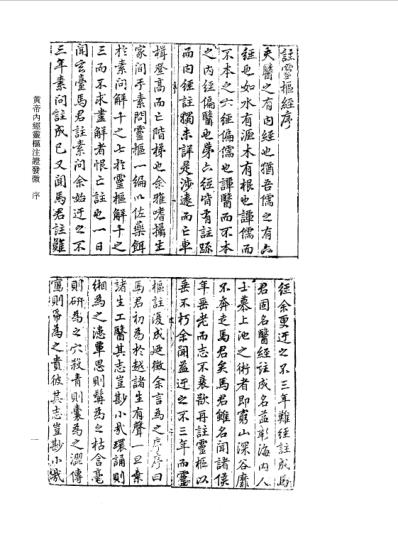 註靈樞經序
夫醫之有內經也猶吾儒之有六
經也如水有源木有根也譚儒而
不本之六經偏儒也譚醫而不本
之內經偏醫也第六經皆有註疏
而內經註獨未詳是涉遠而亡車
楫登高而亡階梯也余雅嗜攝生
家間手素問靈樞一編以佐藥餌
於素問解十之七於靈樞解十之
三而不求盡解者恨亡註也一日
聞玄臺馬君註素問余始迂之不
三年素問註成已又聞馬君註難
經余更迂之不三年難經註成馬
君因名醫經註成名益彰海內人
士慕上池之術者即窮山深谷靡
不奔走馬君矣馬君雖名聞諸侯
年垂老而志不衰歇再註靈樞以
垂不朽余聞益迂之不三年而靈
樞註復成廼徵余言為之序序曰
馬君初為於越諸生有聲一旦棄
諸生工醫其志豈尠小哉環誦則
緗為之漶覃思則鬢為之枯含毫
則研為之穴殺青則囊為之澀傳
鷹則帋為之貴彼其志豈尠小哉
黃帝內經靈樞注證發微 序
一